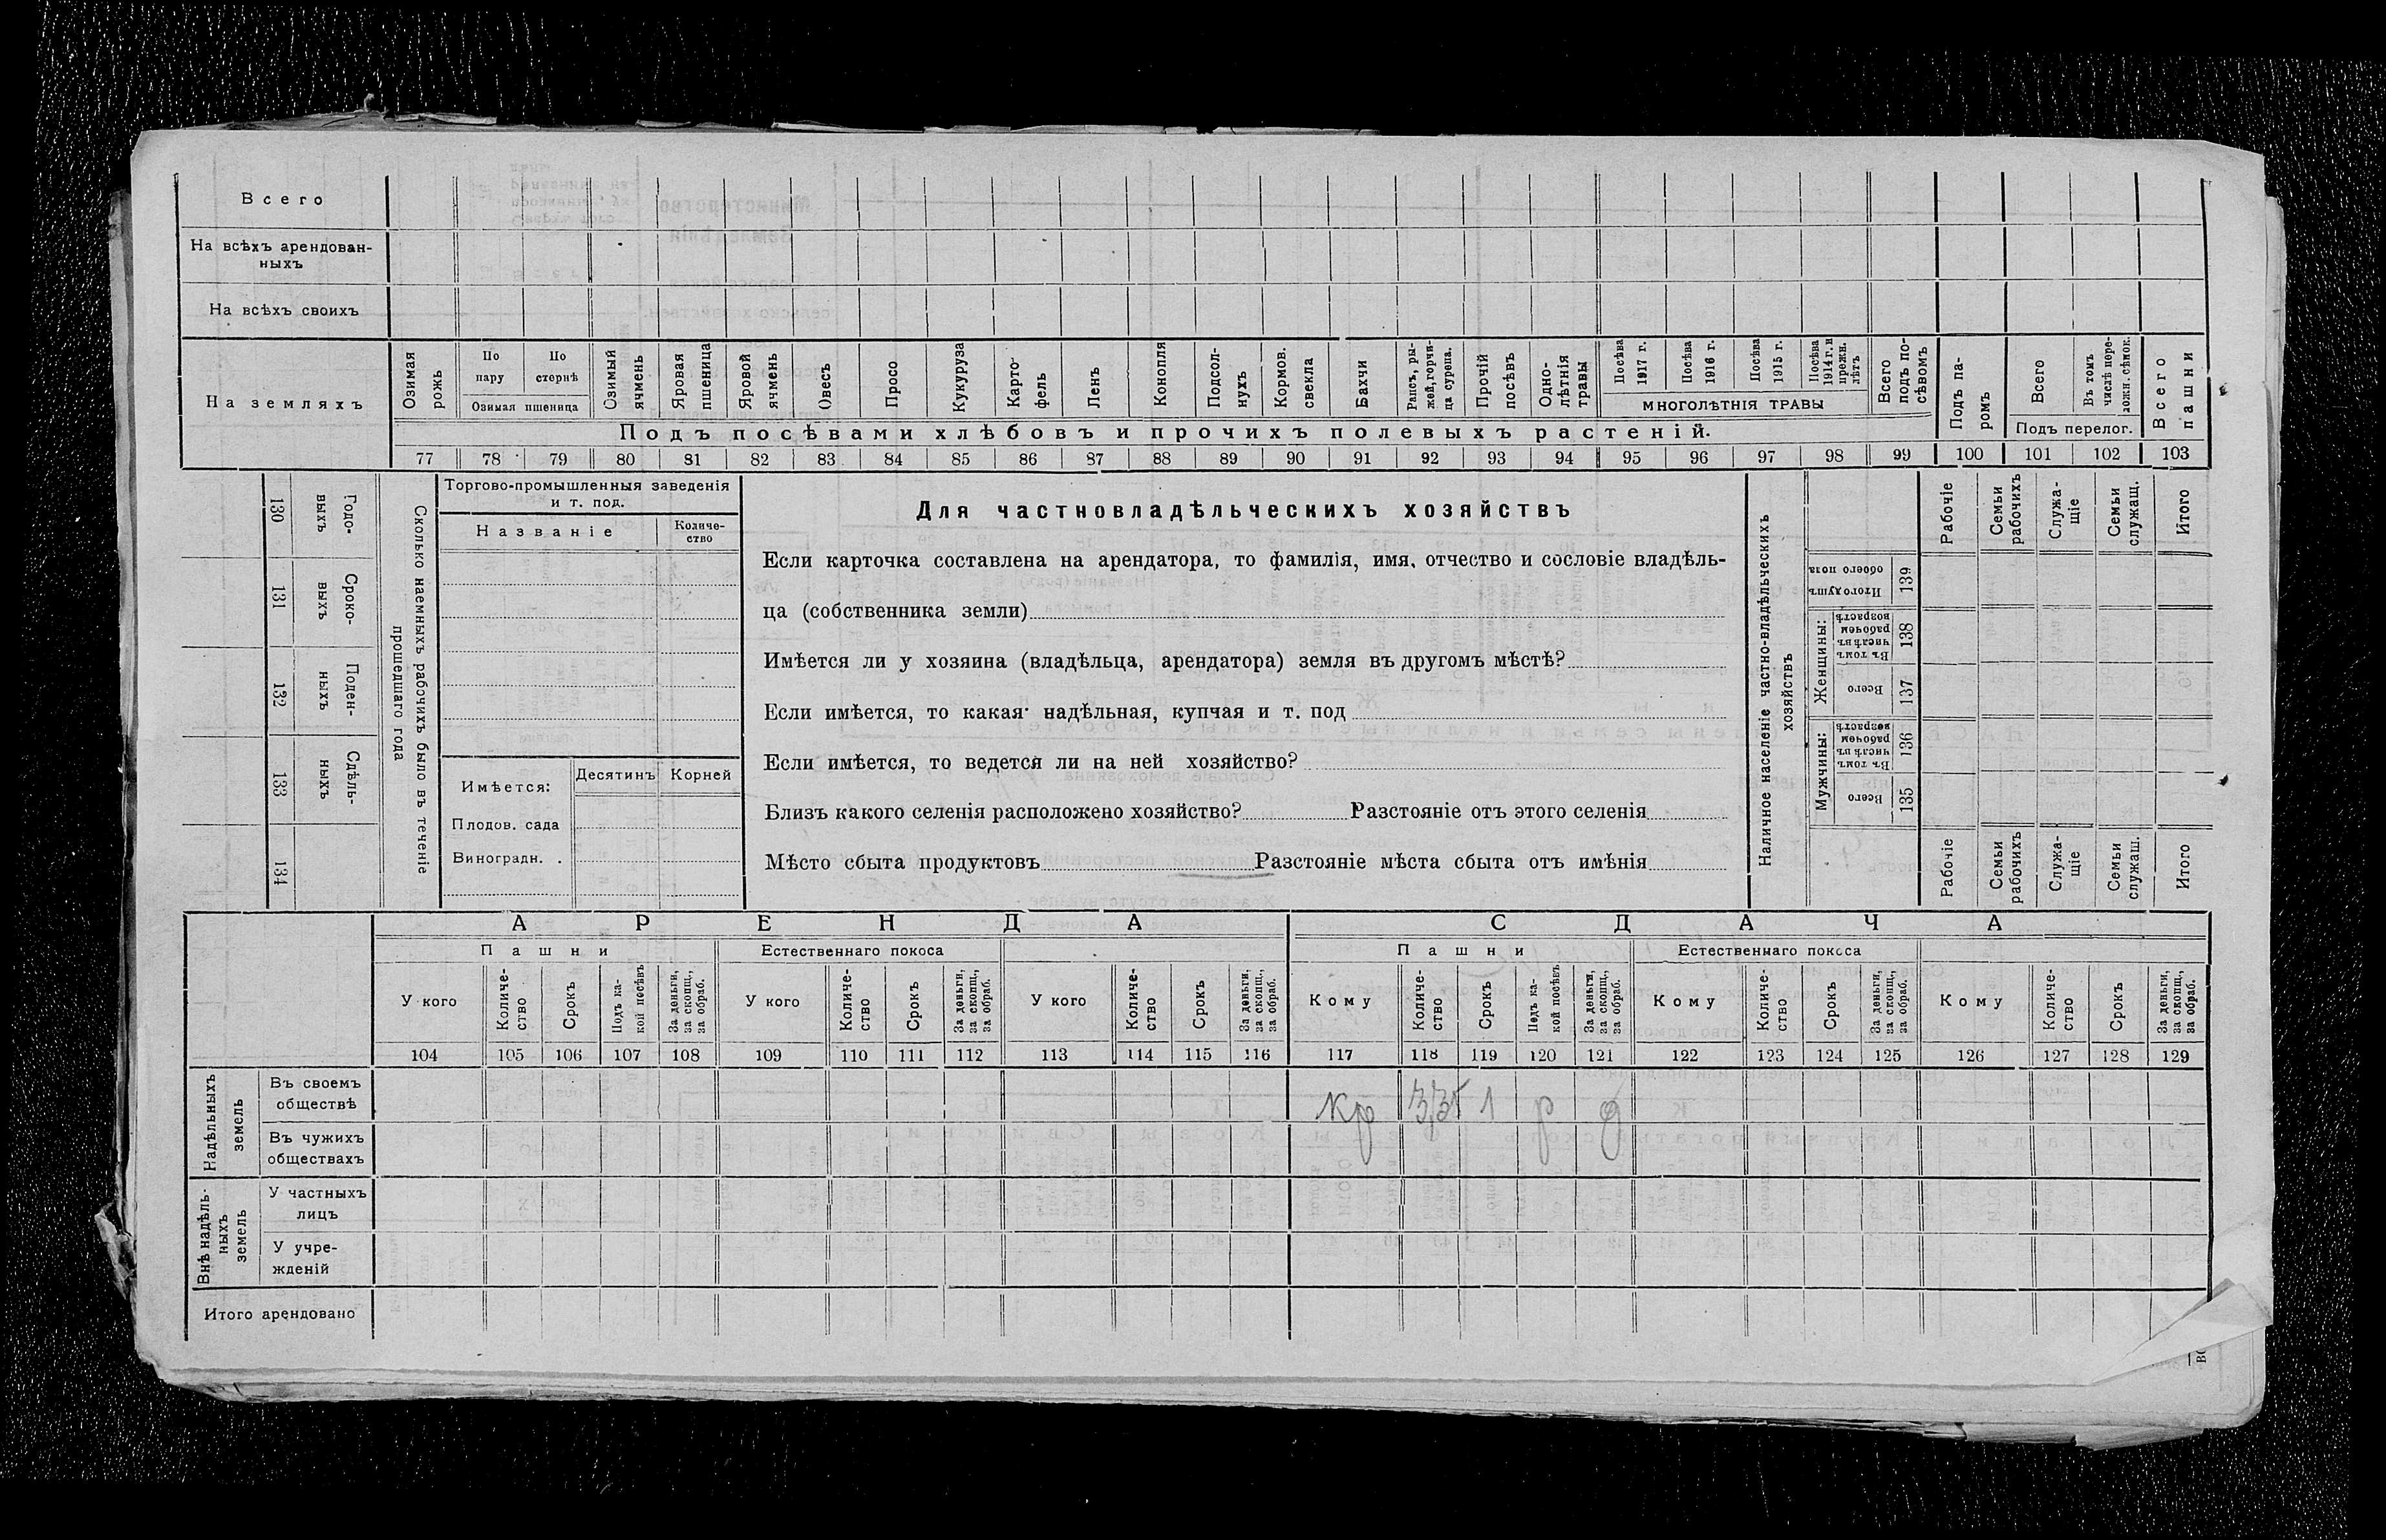 Всего
На всѣхъ арендован-
ныхъ
На всѣхъ своихъ
На земляхъ
Озимая рожь
По пару
По стернѣ
Озимая пшеница
Озимый ячмень
Яровая пшеница
Яровой ячмень
Овесъ
Просо
Кукуруза
Карто-
фель
Ленъ
Конопля
Подсол-
нухъ
Кормов. свекла
Бахчи
Рапсъ, ры-
жей, горчи-
ца сурепа.
Прочій посѣвъ
Одно-
лѣтнія
травы
Посѣва 1917 г.
Посѣва 1916 г.
Посѣва 1915 г.
Посѣва 1914 г. и прежн. лѣтъ
МНОГОЛѢТНІЯ ТРАВЫ
Всего подъ по-
сѣвомъ
Подъ па-
ромъ
Всего
Въ томъ числѣ пере-
ложн. сѣнок.
Подъ перелог.
Всего пашни
Подъ посѣвами хлѣбовъ и прочихъ полевыхъ растеній.
77 78 79 80 81 82 83 84 85 86 87 88 89 90 91 92 93 94 95 96 97 98 99 100 101 102 103
130 Годо-
выхъ
131 Сроко-
выхъ
132 Поден-
ныхъ
133 Сдѣль-
ныхъ
134
Сколько наемныхъ рабочихъ было въ теченіе
прошедшаго года
Торгово-промышленныя заведенія
и т. под.
Названіе
Количе-
ство
Имѣется:
Десятинъ
Корней
Плодов. сада
Виноградн. .
Для частновладѣльческихъ хозяйствъ
Если карточка составлена на арендатора, то фамилія, имя, отчество и сословіе владѣль-
ца (собственника земли)
Имѣется ли у хозяина (владѣльца, арендатора) земля въ другомъ мѣстѣ?
Если имѣется, то какая· надѣльная, купчая и т. под
Если имѣется, то ведется ли на ней хозяйство?
Близъ какого селенія расположено хозяйство? Разстояніе отъ этого селенія
Мѣсто сбыта продуктовъ Разстояніе мѣста сбыта отъ имѣнія
Наличное населеніе частно-владѣльческихъ
хозяйствъ
Рабочіе
Семьи рабочихъ
Служа-
щіе
Семьи служащ.
Итого
Итого душъ обоего пола 139
Женщины:
Въ томъ числѣ въ рабочем возрастѣ 138
Всего 137
Мужчины:
Въ томъ числѣ въ рабочем возрастѣ 136
Всего 135
Рабочіе
Семьи рабочихъ
Служа-
щіе
Семьи служащ.
Итого
АРЕНДА
СДАЧА
Пашни
Естественнаго покоса
Пашни
Естественнаго покоса
У кого
Количе-
ство
Срокъ
Подъ ка-
кой посѣвъ
За деньги, за скопщ., за обраб.
У кого
Количе-
ство
Срокъ
За деньги, за скопщ., за обраб.
У кого
Количе-
ство
Срокъ
За деньги, за скопщ., за обраб.
Кому
Количе-
ство
Срокъ
Подъ ка-
кой посѣвъ
За деньги, за скопщ., за обраб.
Кому
Количе-
ство
Срокъ
За деньги, за скопщ., за обраб.
Кому
Количе-
ство
Срокъ
За деньги, за скопщ., за обраб.
104 105 106 107 108 109 110 111 112 113 114 115 116 117 118 119 120 121 122 123 124 125 126 127 128 129
Надѣльныхъ земель
Въ своемъ
обществѣ
Кр 3,35 1 р д
Въ чужихъ
обществахъ
Внѣ надѣль-
ныхъ
земель
У частныхъ
лицъ
У учре-
жденій
Итого арендовано